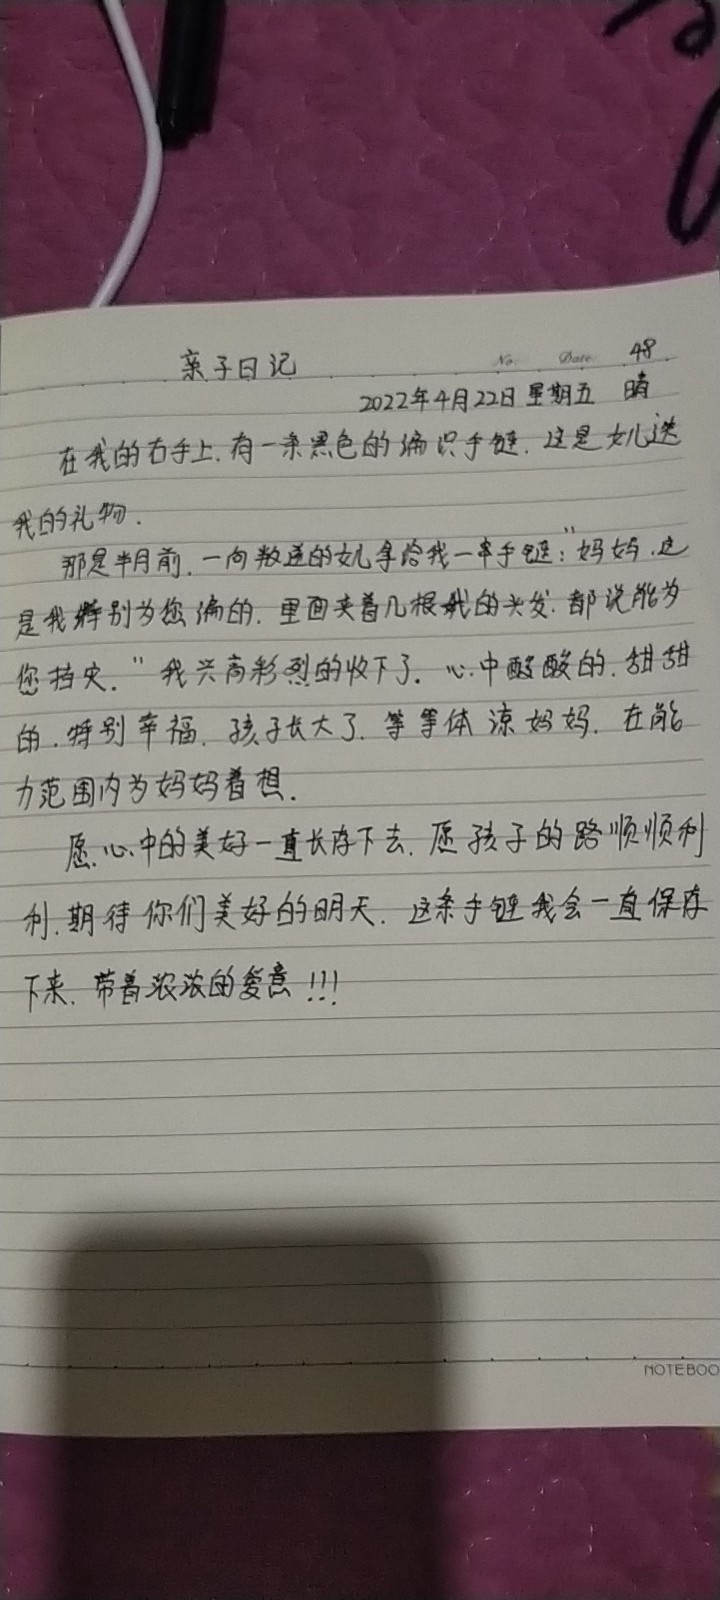 亲子日记 No: Date: 48
2022年4月22日 星期五 晴
在我的右手上.有一条黑色的编识手链.这是女儿送
我的礼物.
那是半月前.一向叛逆的女儿拿给我一串手链:"妈妈.这
是我特别为您编的.里面夹着几根我的头发.都说能为
您挡灾."我兴高彩烈的收下了.心中酸酸的.甜甜
的.特别幸福.孩子长大了.等等体谅妈妈.在能
力范围内为妈妈着想.
愿心中的美好一直长存下去.愿孩子的路顺顺利
利.期待你们美好的明天.这条手链我会一直保存
下来.带着浓浓的爱意!!!
NOTEBOO